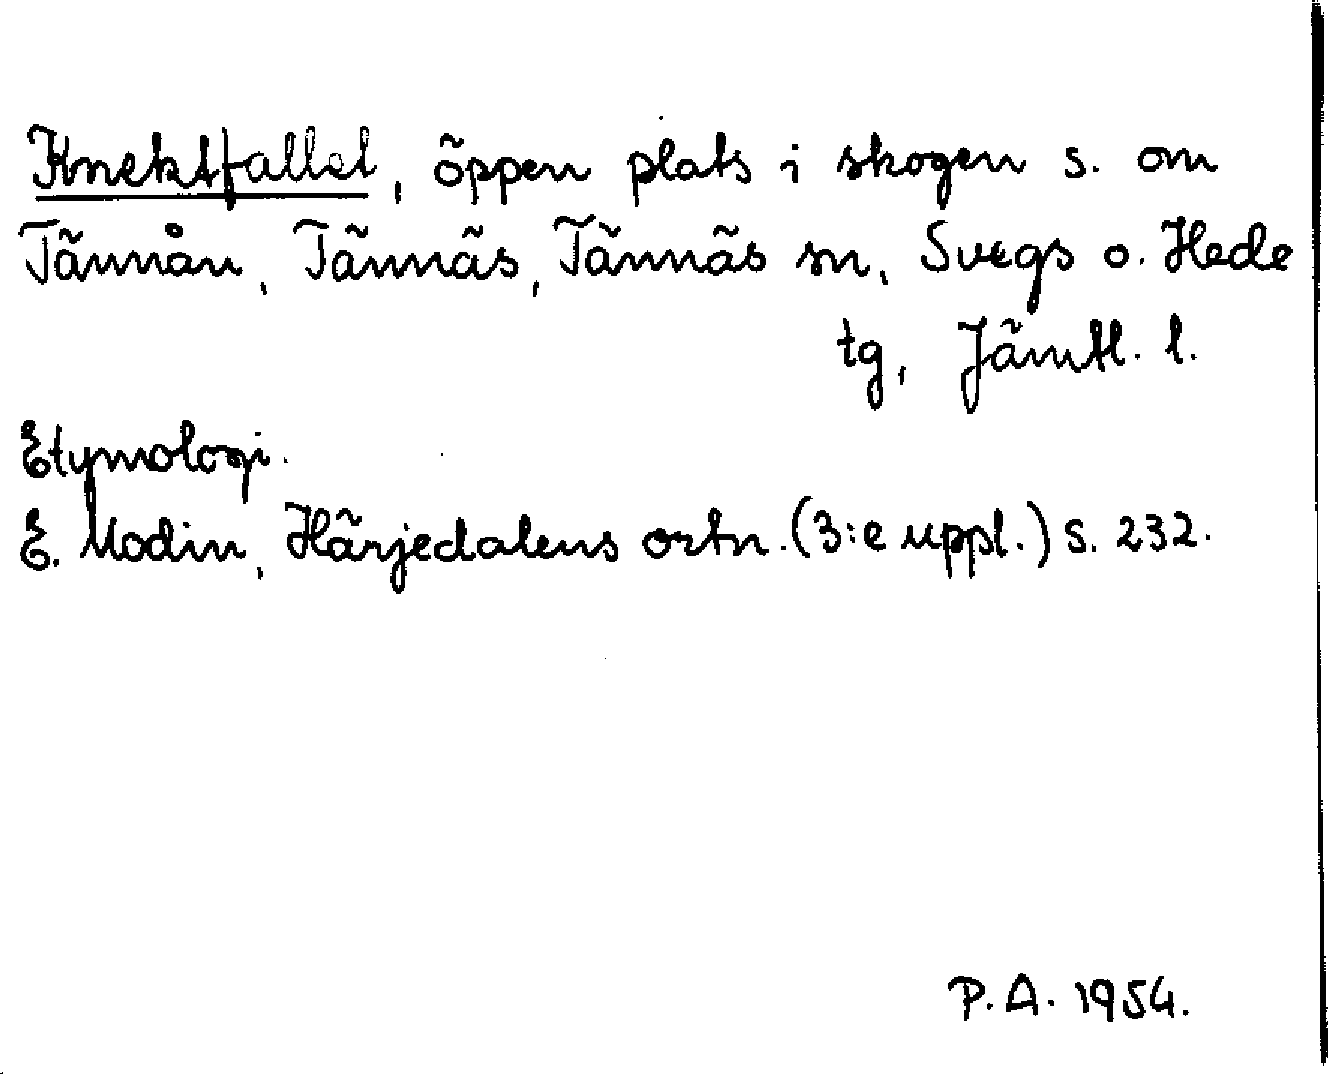 Knektfallet, öppen plats i skogen s. om
Tännån, Tännäs, Tännäs sn, Svegs o. Hede
tg, Jämtl. l.
Etymologi.
E. Modin, Härjedalens ortn. (3:e uppl.) s. 232.
P. A. 1954.